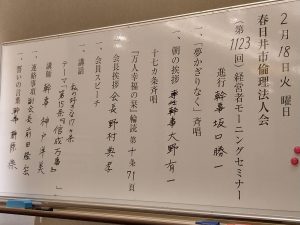 2月18日火曜日
春日井市倫理法人会
(第1123回)経営者モーニングセミナー
進行 幹事 坂口勝一
一、「夢かぎりなく」斉唱
一、朝の挨拶 幹事 大野有一
十七カ条斉唱
『万人幸福の栞』輪読 第十条71頁
会長挨拶 会長 野村典孝
一、会員スピーチ
一、講話
テーマ「第15条 信成万事」
講師 幹事 神戸洋美
一、連絡事項 副会長 前田
一、誓いの言葉 幹事